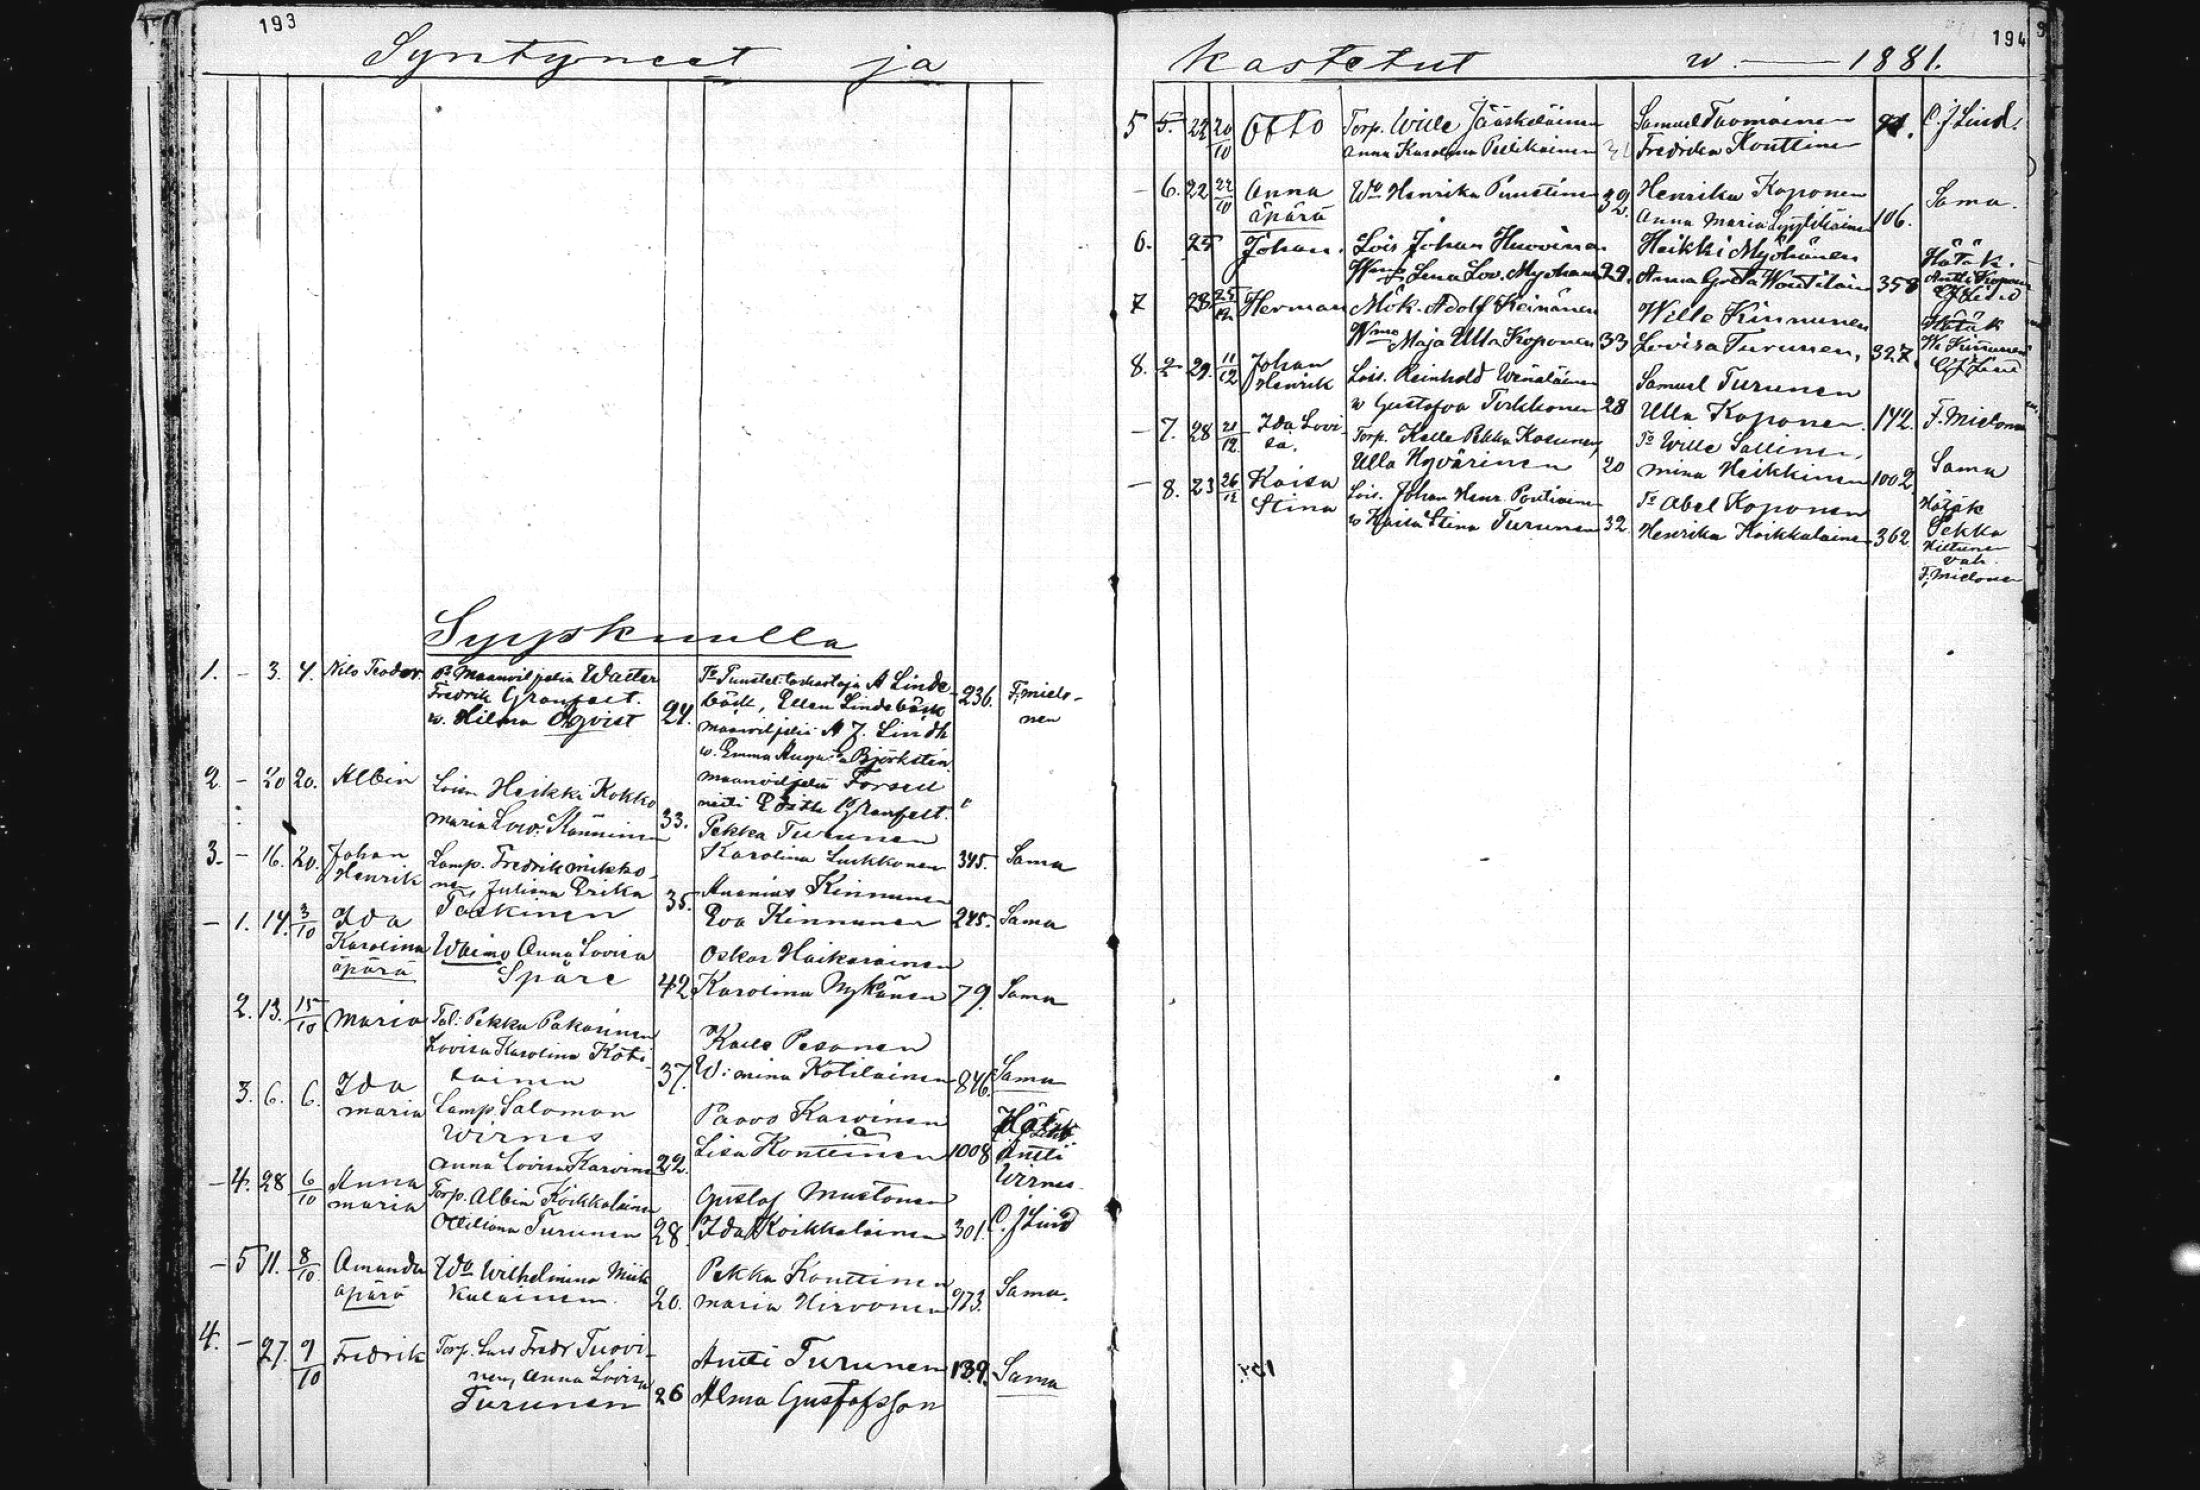 193
Syntyneet ja
Syyskuulla
1. - 3. 4. Nils Teodor P: Maanviljeliä Walter
Fredrik Granfelt.
w. Hilma Öqvist 24.
To Puustel: tarkastaja A Linde-
bäck, Ellen Lindebäck
maanviljeliä A J. Lindh
w. Emma Björkstén
maanviljeliä Forsell
neiti Edith Granfelt.
236. F. Mielo-
nen
2. - 20 20. Albin Loisen Heikki Kokko
Maria Lov. 33.
Pekka Turunen
Karolina 345. Sama
3. - 16. 20. Johan
Henrik
Lamp. Fredrik Mikko-
nen, Juliana Erika
35.
Ananias Kinnunen
Eva Kinnunen 245. Sama
- 1. 14. 3/10 Ida
Karolina
äpärä
Anna Lovisa
Spåre 42
Oskar Haikarainen
Karolina Nykänen 79. Sama
2. 13. 15/10 Maria Tal: Pekka Pakarinen
Lovisa Karolina Koti-
lainen 37.
Kalle Pesonen
W:mina Kotilainen 846. Sama
3. 6. 6. Ida
Maria
Lamp. Salomon
Wirnes
Anna Lovisa Karvinen 22.
Paavo Karvinen
Lisa Konttinen 1008
Antti
Wirnes
- 4. 28 6/10 Anna
Maria
Torp. Albin Koikkalainen
Ottiliana Turunen 28.
Gustaf Mustonen
Ida Koikkalainen 301. C. J Lind
- 5 11. 8/10. Amanda
äpärä
Wilhelmina Miik-
kulainen. 20.
Pekka Konttinen
Maria Hirvonen 973. Sama.
4. - 27. 9/10 Fredrik Torp. Lars Fredr Tuovi-
nen, Anna Lovisa
Turunen 26
Antti Turunen 139. Sama
Alma Gustafsson
194
kastetut w. — 1881.
5 5. 22 20/10 Otto Torp. Wille Jääskeläinen
Anna Karolina Pelikainen
Samuel Tuomainen
Fredrika Konttinen
C. J. Lind.
- 6. 22 22/10 Anna
äpärä
Wa Henrika Puustinen 39.
Henrika Koponen
Anna Maria Lyytikäinen 106. Sama.
6. 25 Johan. Lois. Johan Huovinen
Wmo Lena Lov. Myöhänen 29.
Heikki Myöhänen
Anna Greta Woutilainen 358
Hätäk.
Antti Koponen
CJ Lind
7 28. 25/12 Herman Mök. Adolf Keinänen
Wmo Maja Ulla Koponen 33
Wille Kinnunen
Lovisa Turunen, 327.
Hätäk
W. Kinnunen
CJ Lind
8. 29. 11/12 Johan
Henrik
Lois. Reinhold Wenäläinen
w Gustafva Tirkkonen 28
Samuel Turunen
Ulla Koponen. 142. F. Mielonen
- 7. 28 21/12. Ida Lovi-
sa.
Torp. Kalle Pekka Kosunen,
Ulla Hyvärinen 20
To Wille Sallinen,
Mina Heikkinen 1002. Sama
- 8. 23 26/12 Kaisa
Stina
Lois. Johan Henr. Pontinen
w Kaisa Stina Turunen 32.
To Abel Koponen
Henrika Koikkalainen 362
Hätäk
Pekka
Hiltunen
vah.
F. Mielonen